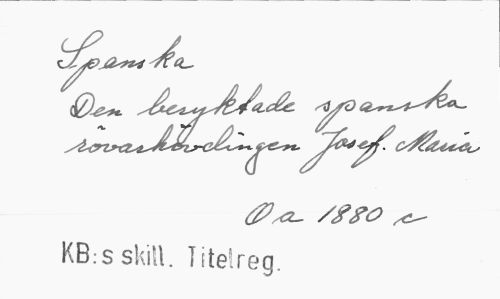 Spanska
Den beryktade spanska
rövarhövdingen Josef. Maria
Oa 1880 c
KB:s skill. Titelreg.